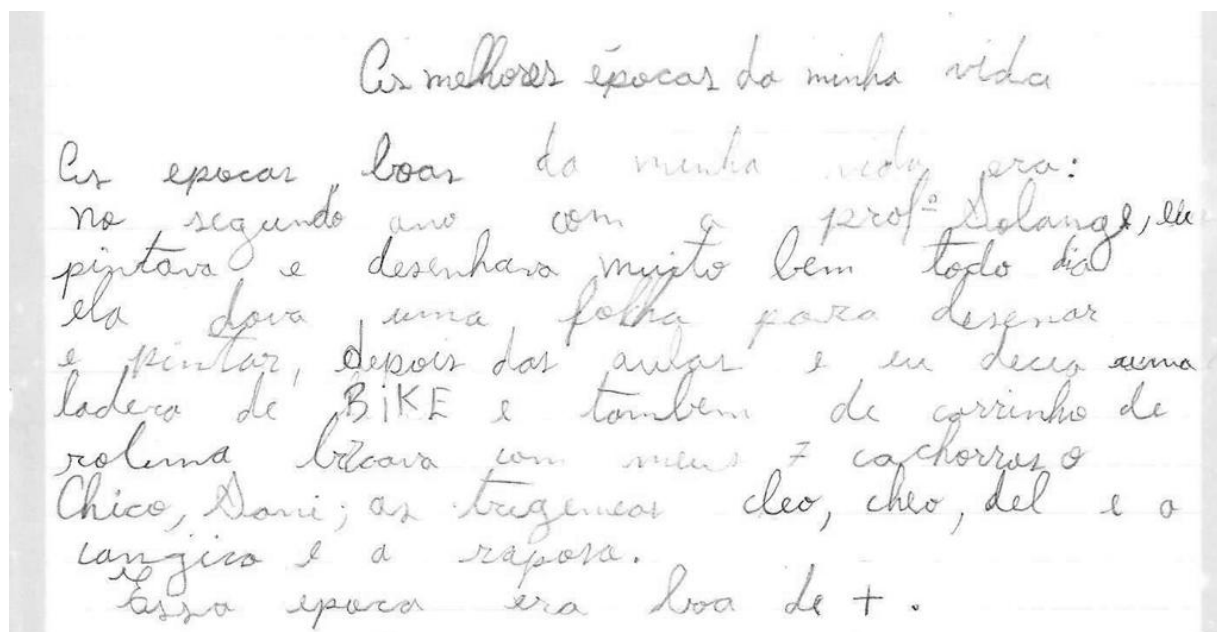 As melhores épocas da minha vida
As epocas boas da minha vida era:
no segundo ano com a profª Solange, eu
pintava e desenhava muito bem todo dia
ela dava uma folha para desenar
e pintar, depois das aulas e eu decia uma
ladera de BiKE e tambem de carrinho de
rolima bricava com meus 7 cachorros o
Chico, Dani; as trigemeas cleo, cheo, del e a
cangica e a raposa.
Essa epoca era boa de + .